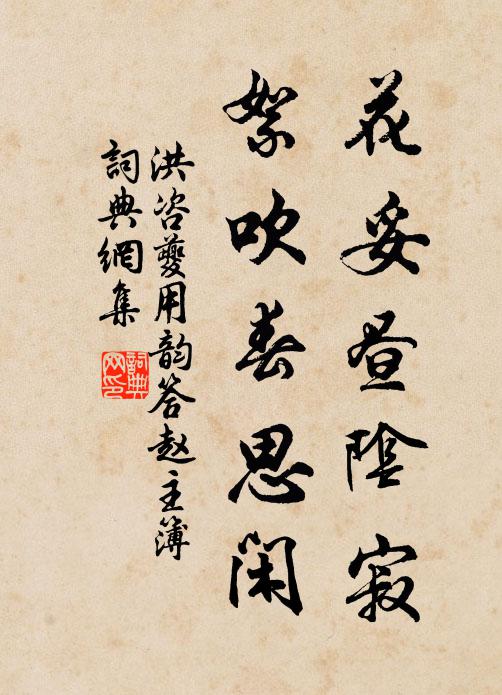 花妥昼陰寂
絮吹春思閑
洪咨夔用韵答赵主簿
詞典網集
詞典網印